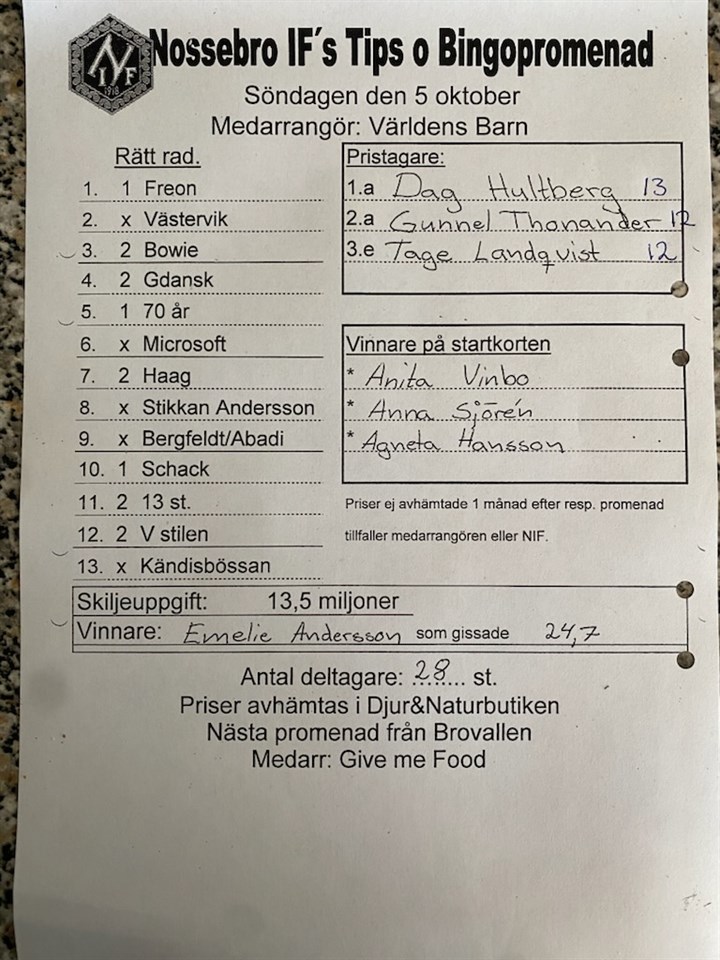 Nossebro IF´s Tips o Bingopromenad
NIF
1918
Söndagen den 5 oktober
Medarrangör: Världens Barn
Rätt rad.
1. 1 Freon
2. x Västervik
3. 2 Bowie
4. 2 Gdansk
5. 1 70 år
6. x Microsoft
7. 2 Haag
8. x Stikkan Andersson
9. x Bergfeldt/Abadi
10. 1 Schack
11. 2 13 st.
12. 2 V stilen
13. x Kändisbössan
Pristagare:
1.a Dag Hultberg 13
2.a Gunnel Thonander 12
3.e Tage Landqvist 12
Vinnare på startkorten
* Anita Vinbo
* Anna Sjörén
* Agneta Hansson
Priser ej avhämtade 1 månad efter resp. promenad
tillfaller medarrangören eller NIF.
Skiljeuppgift: 13,5 miljoner
Vinnare: Emelie Andersson som gissade 24,7
Antal deltagare: 28 st.
Priser avhämtas i Djur&Naturbutiken
Nästa promenad från Brovallen
Medarr: Give me Food